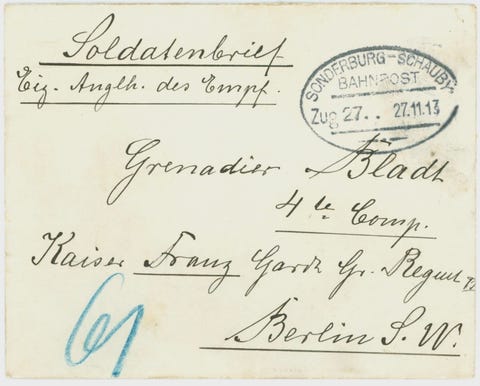 Soldatenbrief
Eig. Anglh. des Empf.
SONDERBURG-SCHAUBY
BAHNPOST
Zug 27.. 27.11.13
Grenadier Bladt
4te Comp.
Kaiser Franz Garde Gr. Regmt
Berlin S.W.
61